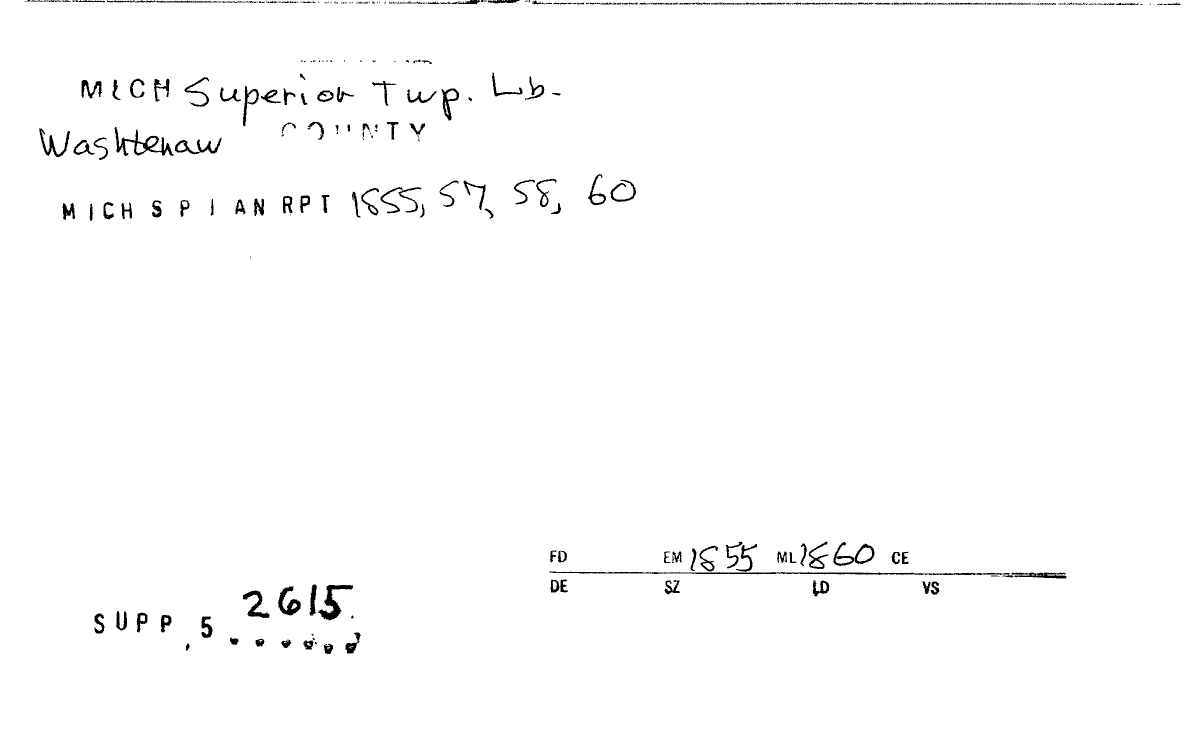 MICH Superior Twp. Lb.
Washtenaw COUNTY
MICH S P I AN RPT 1855, 57, 58, 60
FD EM 1855 ML 1860 CE
DE SZ LD VS
SUPP, 5 2615